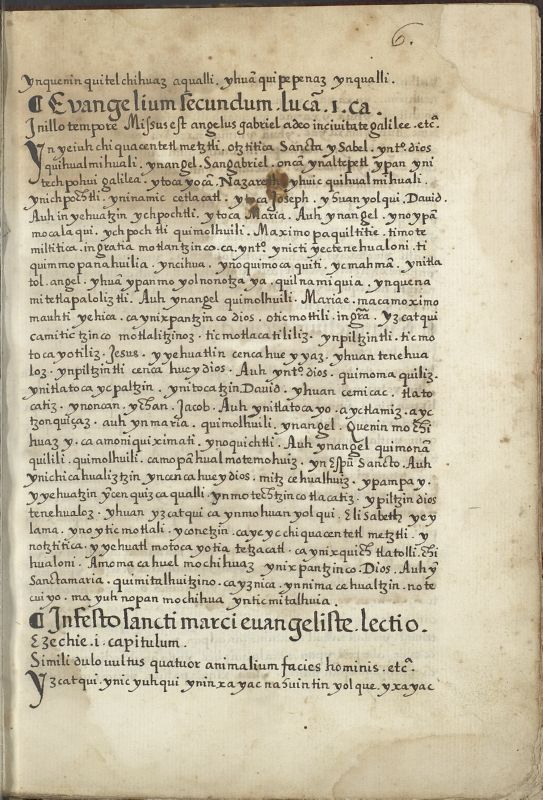 6.
ynquenin quitelchihuaz aqualli. yhuã quipepenaz ynqualli.
¶ Evangelium secundum. lucã. 1. ca.
In illo tempore Missus est angelus gabriel adeo inciuitate galilee. etcͣ.
Yn yeiuh chiquacentetl metztli, otztitica Sancta ysabel. yntº. dios
quihualmihuali. ynangel. San gabriel. oncã ynaltepetl ypan yni
techpohui galilea. ytoca yocã. Nazareth yhuic quihualmihuali.
ynichpochtli. yninamic cetlacatl. ytoca Joseph. yhuan yolqui. David.
Auh in yehuatzin ychpochtli. ytoca Maria. Auh ynangel. ynoypã
mocalaqui. ychpochtli quimolhuili. Maximopaquiltitie. timote
miltitica. ingratia motlantzinco. ca. yntº. ynicti yectenehualoni. ti
quimmopanahuilia. yncihua. ynoquimocaquiti. ycmahmã. ynitla
tol. angel. yhuã ypanmo yolnonotza ya. quilnamiquia. ynquena
mitetlapaloliztli. Auh ynangel quimolhuili. Mariae. macamoximo
mauhti yehica. ca ynixpantzinco dios. oticmottili. ingrã. yzcatqui
camiticitzinco motlalitzinoz. ticmotlacatililiz. ynpiltzintli. ticmo
tocayotiliz. Jesus. yyehuatlin cenca hueyyaz. yhuan tenehua
loz. ynpiltzintli cenca huey dios. Auh yntº. dios. quimomaquiliz.
ynitlatocaycpaltzin. ynitocatzin. David. yhuan cemicac. tlato
catiz. ynoncan. ychan. Jacob. Auh ynitlatocayo. ayctlamiz. ayc
tzonquiçaz. auh ynmaria. quimolhuili. ynangel. Quenin mochi
huaz y. ca amoniquiximati. ynoquichtli. Auh ynangel quimonã
quilili. quimolhuili. camopã hualmotemohuiz. ynEspũ Sancto. Auh
ynichicahualiztzin yncenca huey dios. mitzcehualhuiz. ypampa y.
yyehuatzin yçenquizcaqualli. ynmotechtzinco tlacatiz. ypiltzin dios
tenehualoz. yhuan yzcatqui ca ynmohuanyolqui. Elisabeth yey
lama. ynoyticmotlali. yconetzin. cayeyc chiquacentetl metztli. y
notztitica. yyehuatl motocayotia tetzacatl. ca ynixquich tlatolli. chi
hualoni. Amoma cahuel mochihuaz ynixpantzinco. Dios. Auh y
Sanctamaria. quimitalhuitzino. ca yznica. ynnimacehualtzin. note
cuiyo. ma yuh nopan mochihua ynticmitalhuia.
¶ In festo sancti marci euangeliste. lectio.
Ezechie. i. capitulum.
Similitudulo vultus quatuor animalium facies hominis. etcͣ.
Yzcatqui. ynic yuhqui yninxayac nahuintin yolque. yxayac